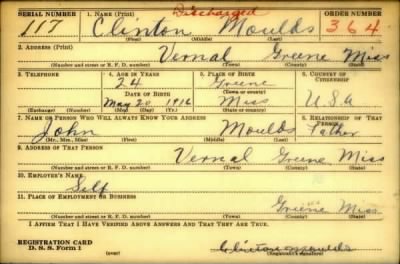 SERIAL NUMBER 1. NAME (Print) Discharged ORDER NUMBER
117 Clinton Moulds 364
(First) (Middle) (Last)
2. ADDRESS (Print)
Vernal Greene Miss
(Number and street or R. F. D. number) (Town) (County) (State)
3. TELEPHONE 4. AGE IN YEARS 5. PLACE OF BIRTH 6. COUNTRY OF CITIZENSHIP
24 Greene
DATE OF BIRTH (Town or county)
May 20 1916 Miss U.S.A
(Exchange) (Number) (Mo.) (Day) (Yr.) (State or country)
7. NAME OF PERSON WHO WILL ALWAYS KNOW YOUR ADDRESS 8. RELATIONSHIP OF THAT PERSON
John Moulds Father
(Mr., Mrs., Miss) (First) (Middle) (Last)
9. ADDRESS OF THAT PERSON
Vernal Greene Miss
(Number and street or R. F. D. number) (Town) (County) (State)
10. EMPLOYER'S NAME
Self
11. PLACE OF EMPLOYMENT OR BUSINESS
Greene Miss
(Number and street or R. F. D. number) (Town) (County) (State)
I AFFIRM THAT I HAVE VERIFIED ABOVE ANSWERS AND THAT THEY ARE TRUE.
REGISTRATION CARD
D. S. S. Form 1 (over) Clinton Moulds
(Registrant's signature)